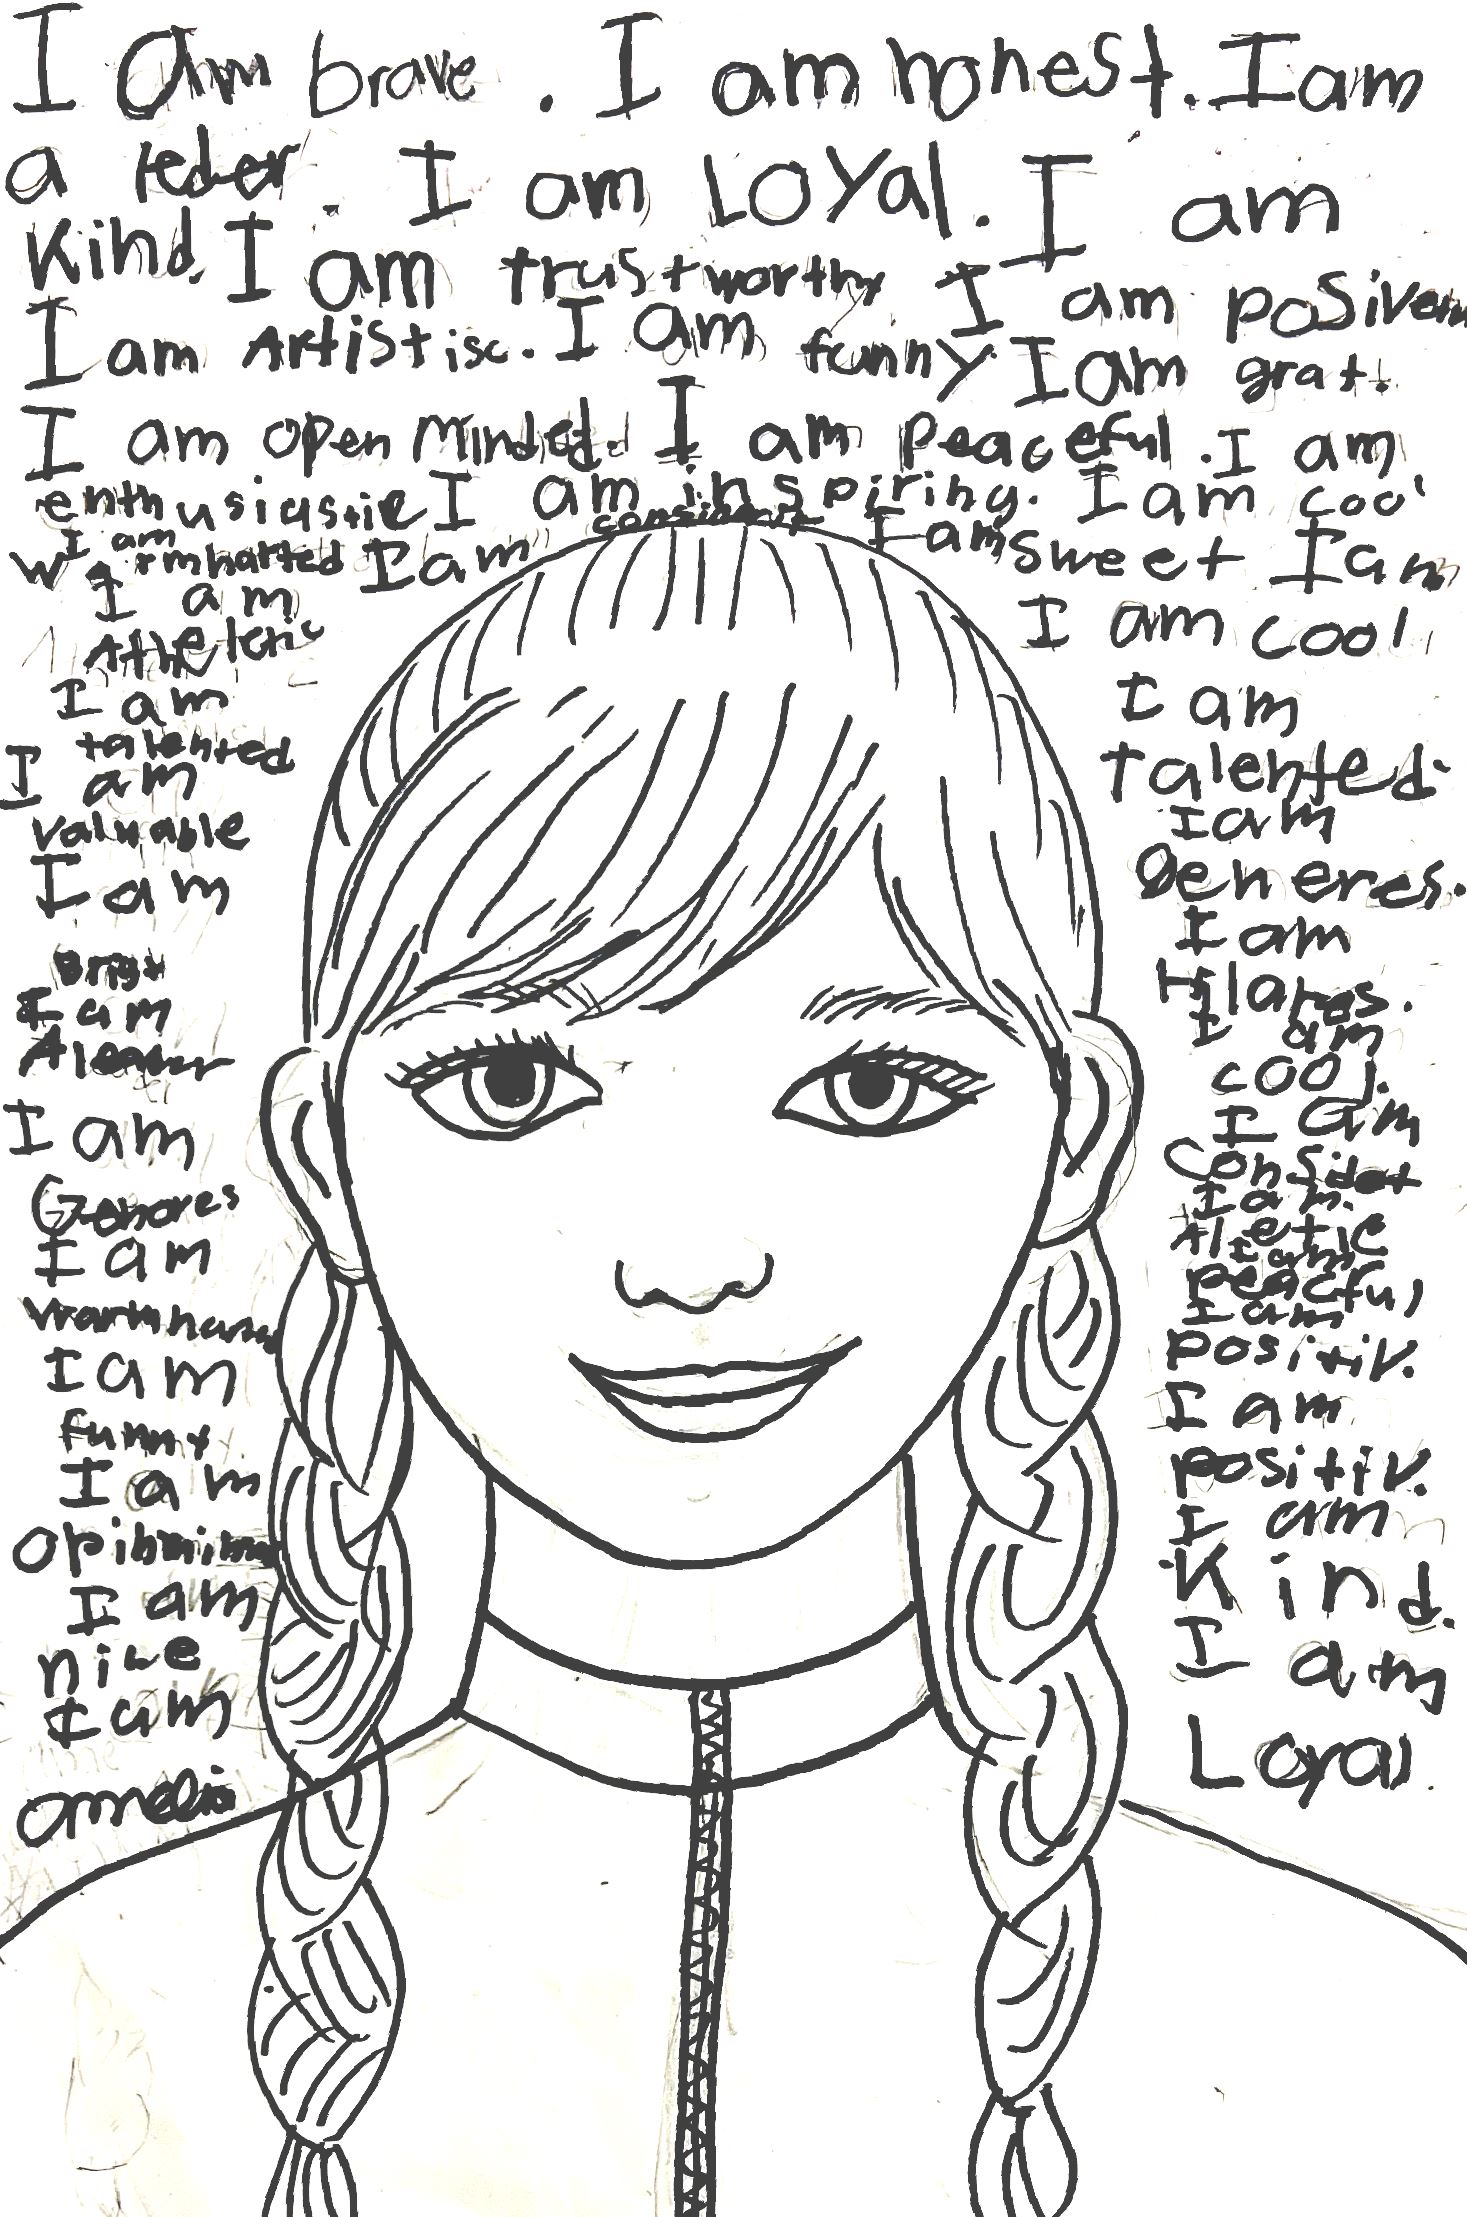 I am brave. I am honest. I am
a leder. I am LOYal. I am
Kind. I am trustworthy I am posiven
I am Artistisc. I am funny I am grat.
I am open Minded. I am Peaceful. I am
enthusiastic I am inspiring. I am cool
I am
warmhatted I am considerit I am sweet I am
I am
Atheletic
I am
talented
I am
valuable
I am
Brigt
I am
I am
Genores
I am
I am
funny
I am
I am
nice
I am
amelia
I am cool
I am
talented.
I am
Generes.
I am
Hilares.
I am
cool.
I am
Consider
I am.
Aletic
I am
peacful
I am
positiv.
I am
positiv.
I am
Kind.
I am
Loyal.